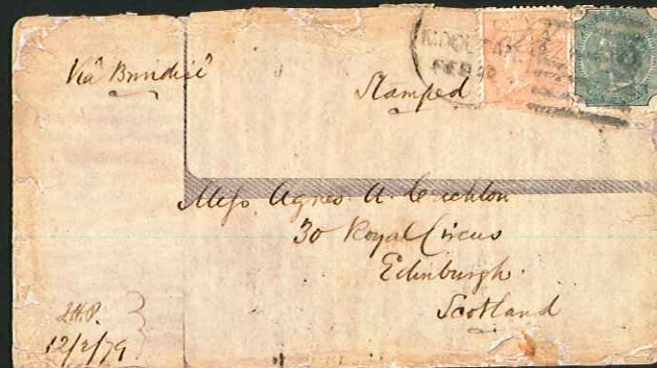 Viâ Brindisi
Stamped
FEB
Miss Agnes A. Crichton
30 Royal Circus
Edinburgh.
Scotland
12/2/79